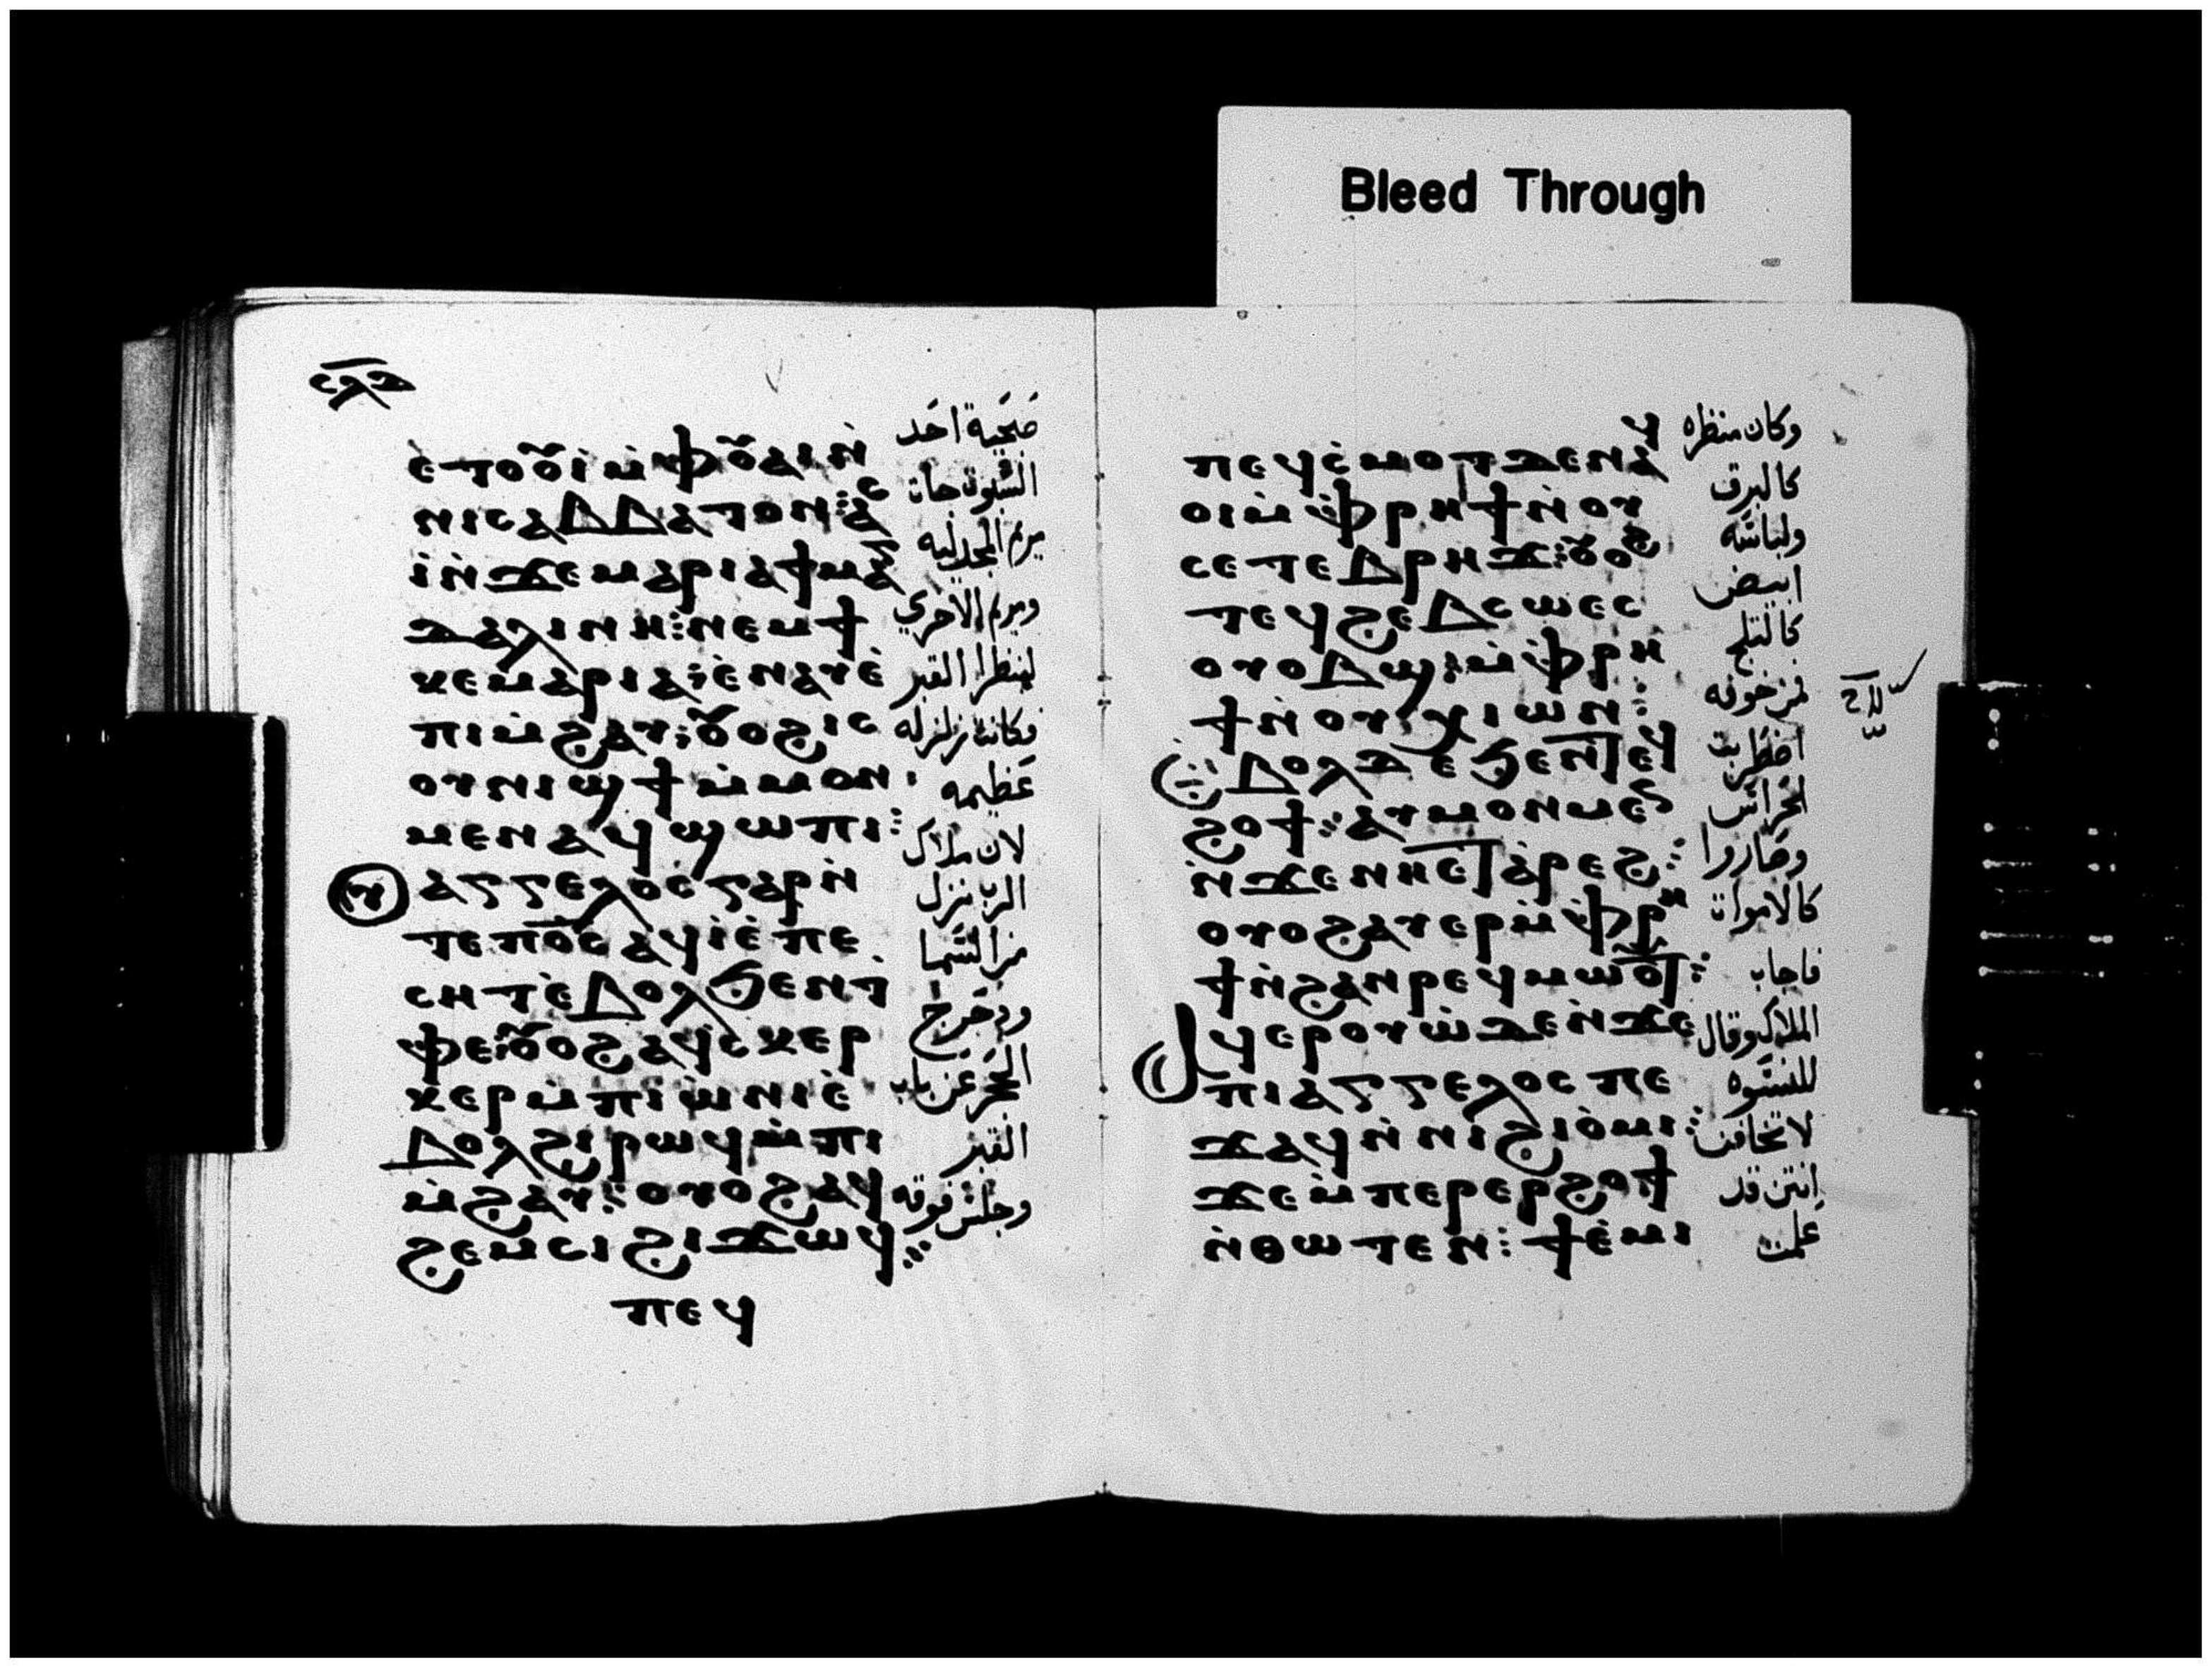 Bleed Through
ⲉⲧⲟⲟⲩⲓ̀ ⲙ̀ⲫⲟⲩⲁⲓ ⲛ̀
ⲛⲓⲥⲁⲃⲃⲁⲧⲟⲛ ⲁⲥ
ⲓ̀ ⲛ̀ϫⲉ ⲙⲁⲣⲓⲁ ϯⲙⲁⲅ
ⲇⲁⲗⲓⲛⲏ ⲛⲉⲙ ϯ
ⲕⲉⲙⲁⲣⲓⲁ ⲉ̀ⲛⲁⲩ ⲉ̀
ⲡⲓⲙ̀ϩⲁⲩ ⲟⲩⲟϩ ⲓⲥ
ⲟⲩⲛⲓϣϯ ⲙ̀ⲙⲟⲛ
ⲙⲉⲛ ⲁϥϣⲱⲡⲓ
ⲁⲅⲅⲉⲗⲟⲥ ⲅⲁⲣ ⲛ̀
ⲧⲉ ⲡⲟ̅ⲥ̅ ⲁϥⲓ̀ ⲉ̀ⲡⲉ
ⲥⲏⲧ ⲉ̀ⲃⲟⲗ ϧⲉⲛ ⲧ̀
ⲫⲉ ⲟⲩⲟϩ ⲁϥⲥⲕⲉⲣ
ⲕⲉⲣ ⲙ̀ⲡⲓⲱ̀ⲛⲓ ⲉ̀
ⲃⲟⲗ ϩⲓⲣⲱϥ ⲙ̀ⲡⲓ
ⲙ̀ϩⲁⲩ ⲟⲩⲟϩ ⲁϥ
ϩⲉⲙⲥⲓ ϩⲓϫⲱϥ
ⲡⲉϥ
صحية احد
السبوت جات
مريم المجدليه
ومريم الاخري
لينظرا القبر
وكانت زلزله
عظيمه
لان ملاك
الرب نزل
من السما
ودحرج
الحجر عن باب
القبر
وجلس فوقه
ⲡⲉϥⲥ̀ⲙⲟⲧ ⲇⲉ ⲛⲁϥ
ⲟⲓ ⲙ̀ⲫⲣⲏϯ ⲛ̀ⲟⲩ
ⲥⲉⲧⲉⲃⲣⲏϫ ⲟⲩⲟϩ
ⲧⲉϥϩⲉⲃⲥⲱ ⲉⲥ
ⲟⲩⲟⲃϣ ⲙ̀ⲫⲣⲏ
ϯ ⲛ̀ⲟⲩⲭⲓⲱⲛ
ⲉ̀ⲃⲟⲗ ⲇⲉ ϧⲉⲛ ⲧⲉϥ
ϩⲟϯ ⲁⲩⲙⲟⲛⲙⲉⲛ
ⲛ̀ϫⲉ ⲛⲏⲉⲧⲁ̀ⲣⲉϩ
ⲟⲩⲟϩ ⲁⲩⲉⲣ ⲙ̀ⲫⲣⲏ
ϯ ⲛ̀ϩⲁⲛⲣⲉϥⲙⲱⲟⲩⲧ
ⲁϥⲉⲣⲟⲩⲱ̀ ⲇⲉ ⲛ̀ϫⲉ
ⲡⲓⲁⲅⲅⲉⲗⲟⲥ ⲡⲉ
ϫⲁϥ ⲛ̀ⲛⲓϩⲓⲟ̀ⲙⲓ
ϫⲉ ⲙ̀ⲡⲉⲣⲉⲣϩⲟϯ
ⲛ̀ⲑⲱⲧⲉⲛ ϯⲉ̀ⲙⲓ
وكان منظره
كالبرق
ولباسه
ابيض
كالثلج
فمن خوفه
اضطربت
الحراس
وصاروا
كالاموات
فاجاب
الملاك وقال
للنسوه
لا تخافن
انتن قد
علمت